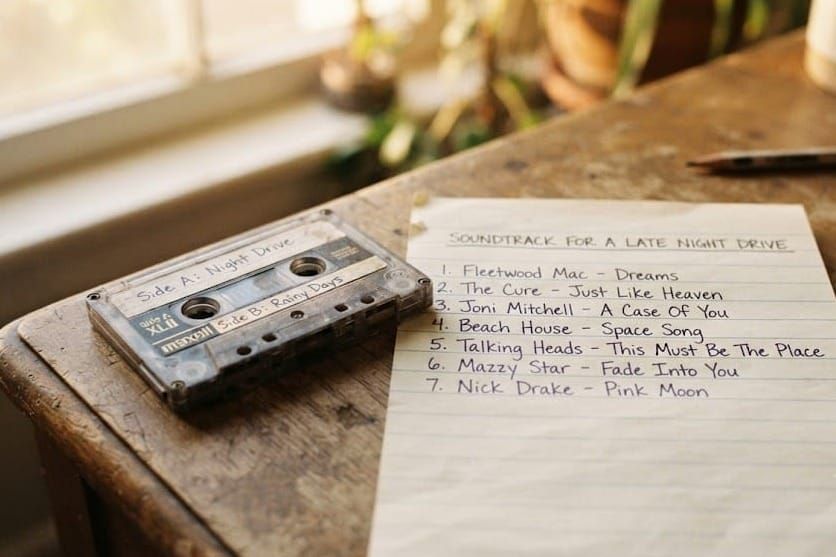 Side A: Night Drive
XLII
maxell
Side B: Rainy Days
SOUNDTRACK FOR A LATE NIGHT DRIVE
1. Fleetwood Mac - Dreams
2. The Cure - Just Like Heaven
3. Joni Mitchell - A Case Of You
4. Beach House - Space Song
5. Talking Heads - This Must Be The Place
6. Mazzy Star - Fade Into You
7. Nick Drake - Pink Moon